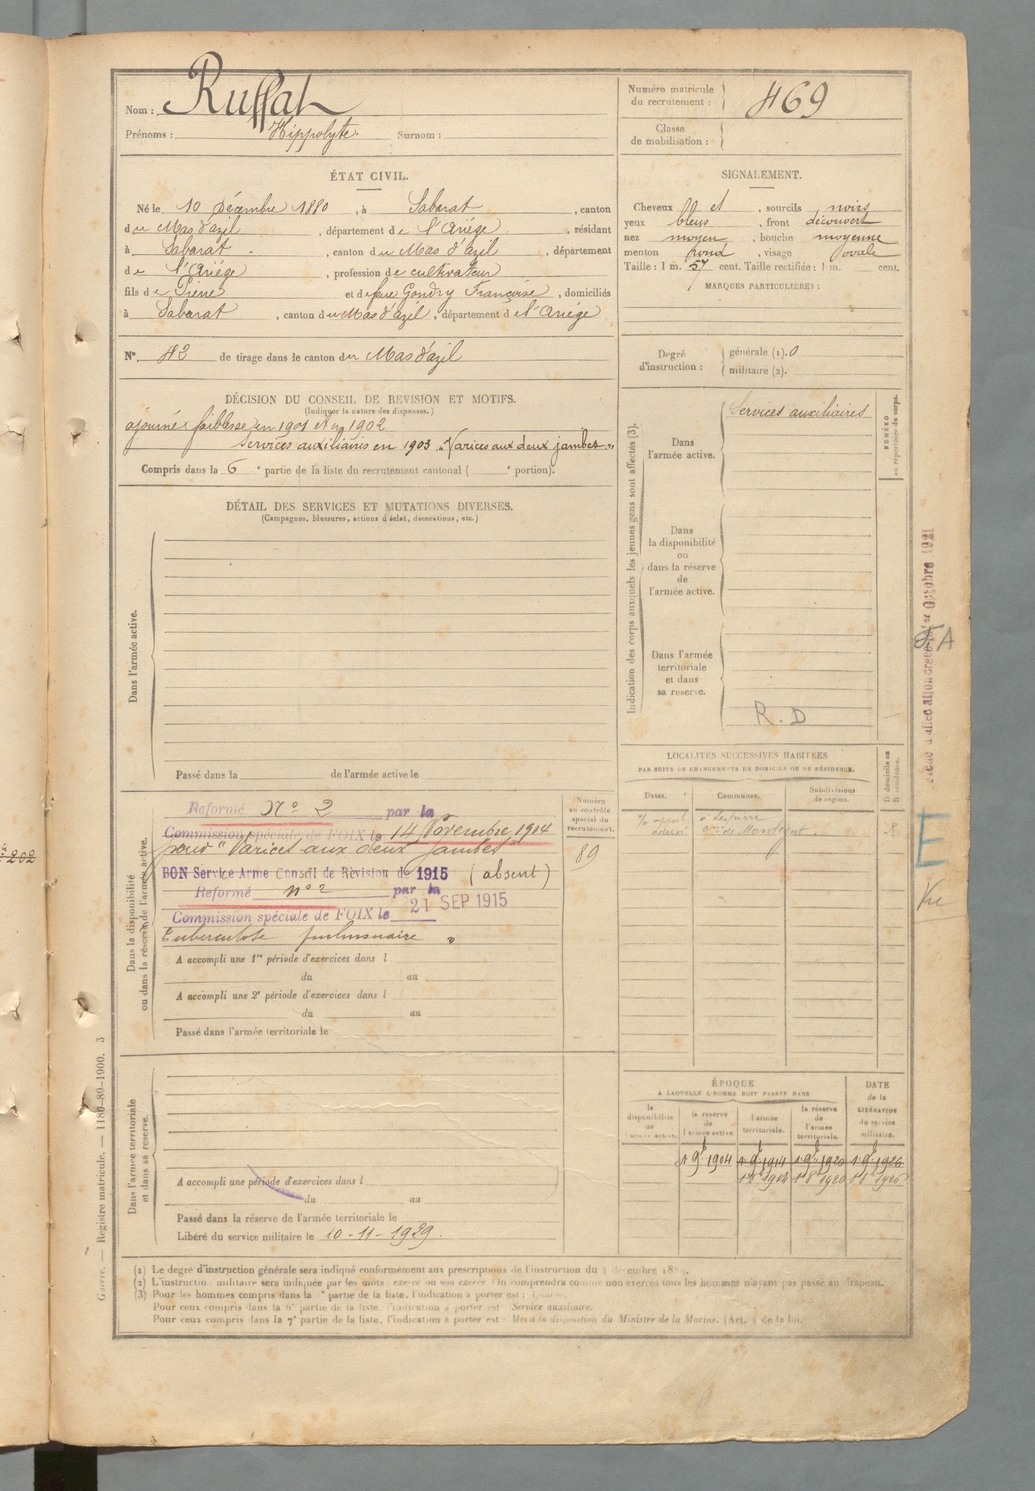 Nom : Ruffat
Prénoms : Hippolyte. Surnom :
Numéro matricule du recrutement : 469
Classe de mobilisation :
ÉTAT CIVIL.
Né le 10 Décembre 1880, à Sabarat, canton
du Mas d'azil, département de l'Ariège, résidant
à Sabarat, canton du Mas d'azil, département
de l'Ariège, profession de cultivateur
fils de Pierre et de feue Goudry Françoise, domiciliés
à Sabarat, canton du Mas d'azil, département de l'Ariège
N° 43 de tirage dans le canton du Mas d'azil
SIGNALEMENT.
Cheveux et, sourcils noirs
yeux bleus, front découvert
nez moyen, bouche moyenne
menton rond, visage ovale
Taille : 1 m. 57 cent. Taille rectifiée : 1 m. cent.
MARQUES PARTICULIÈRES :
Degré d'instruction :
générale (1). 0
militaire (2).
DÉCISION DU CONSEIL DE REVISION ET MOTIFS.
(Indiquer la nature des dispenses.)
ajourné faiblesse en 1901 et en 1902
Services auxiliaires en 1903 « Varices aux deux jambes »
Compris dans la 6e partie de la liste du recrutement cantonal ( e portion).
DÉTAIL DES SERVICES ET MUTATIONS DIVERSES.
(Campagnes, blessures, actions d'éclat, décorations, etc.)
Dans l'armée active.
Passé dans la de l'armée active le
Indication des corps auxquels les jeunes gens sont affectés (3).
Dans l'armée active.
Services auxiliaires
NUMÉRO au répertoire du corps.
Dans la disponibilité ou dans la réserve de l'armée active.
Dans l'armée territoriale et dans sa réserve.
R.D
Octobre 1921
LOCALITÉS SUCCESSIVES HABITÉES
PAR SUITE DE CHANGEMENTS DE DOMICILE OU DE RÉSIDENCE.
Dates.
Communes.
Subdivisions de région.
D domicile ou R résidence.
E
Dans la disponibilité ou dans la réserve de l'armée active.
Numéro au contrôle spécial du recrutement.
89
Réformé N° 2 par la
Commission spéciale de FOIX le 14 Novembre 1914
pour "Varices aux deux jambes"
BON Service Armé Conseil de Révision de 1915 (absent)
Réformé n° 2 par la
Commission spéciale de FOIX le 21 SEP 1915
Tuberculose pulmonaire »
A accompli une 1re période d'exercices dans l
du au
A accompli une 2e période d'exercices dans l
du au
Passé dans l'armée territoriale le
Dans l'armée territoriale et dans sa réserve.
A accompli une période d'exercices dans l
du au
Passé dans la réserve de l'armée territoriale le
Libéré du service militaire le 10-11-1929.
ÉPOQUE
À LAQUELLE L'HOMME DOIT PASSER DANS
la disponibilité de l'armée active.
la réserve de l'armée active.
l'armée territoriale.
la réserve de l'armée territoriale.
DATE de la LIBÉRATION du service militaire.
1 9bre 1904 1 9bre 1914 1 9bre 1920 1 9bre 1926
(1) Le degré d'instruction générale sera indiqué conformément aux prescriptions de l'instruction du 4 décembre
(2) L'instruction militaire sera indiquée par les mots : exercé ou non exercé. On comprendra comme non exercés tous les hommes n'ayant pas passé au drapeau.
(3) Pour les hommes compris dans la 1re partie de la liste, l'indication à porter est :
Pour ceux compris dans la 6e partie de la liste, l'indication à porter est : Service auxiliaire.
Pour ceux compris dans la 7e partie de la liste, l'indication à porter est : Mis à la disposition du Ministre de la Marine. (Art. 4 de la loi.)
Guerre. — Registre matricule. — 1189-89-1900. 3
202